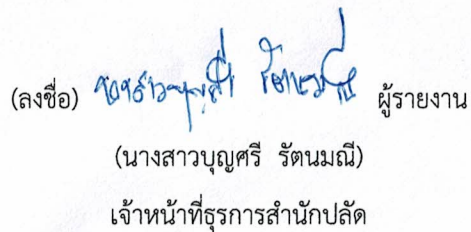 (ลงชื่อ) นางสาวบุญศรี รัตนมณี ผู้รายงาน
(นางสาวบุญศรี รัตนมณี)
เจ้าหน้าที่ธุรการสำนักปลัด